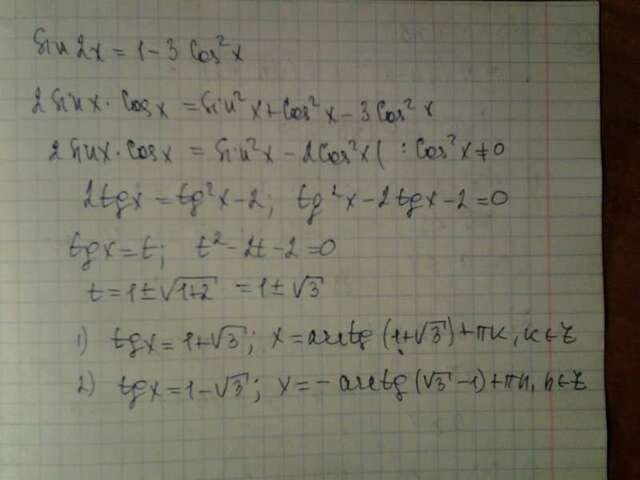 sin 2x = 1 - 3 cos²x
2 sin x · cos x = sin²x + cos²x - 3 cos²x
2 sin x · cos x = sin²x - 2 cos²x ( : cos²x ≠ 0
2tg x = tg²x - 2; tg²x - 2tg x - 2 = 0
tg x = t; t² - 2t - 2 = 0
t = 1 ± √1+2 = 1 ± √3
1) tg x = 1+√3; x = arctg (1+√3) + πk, k ∈ Z
2) tg x = 1-√3; x = - arctg (√3 - 1) + πn, n ∈ Z